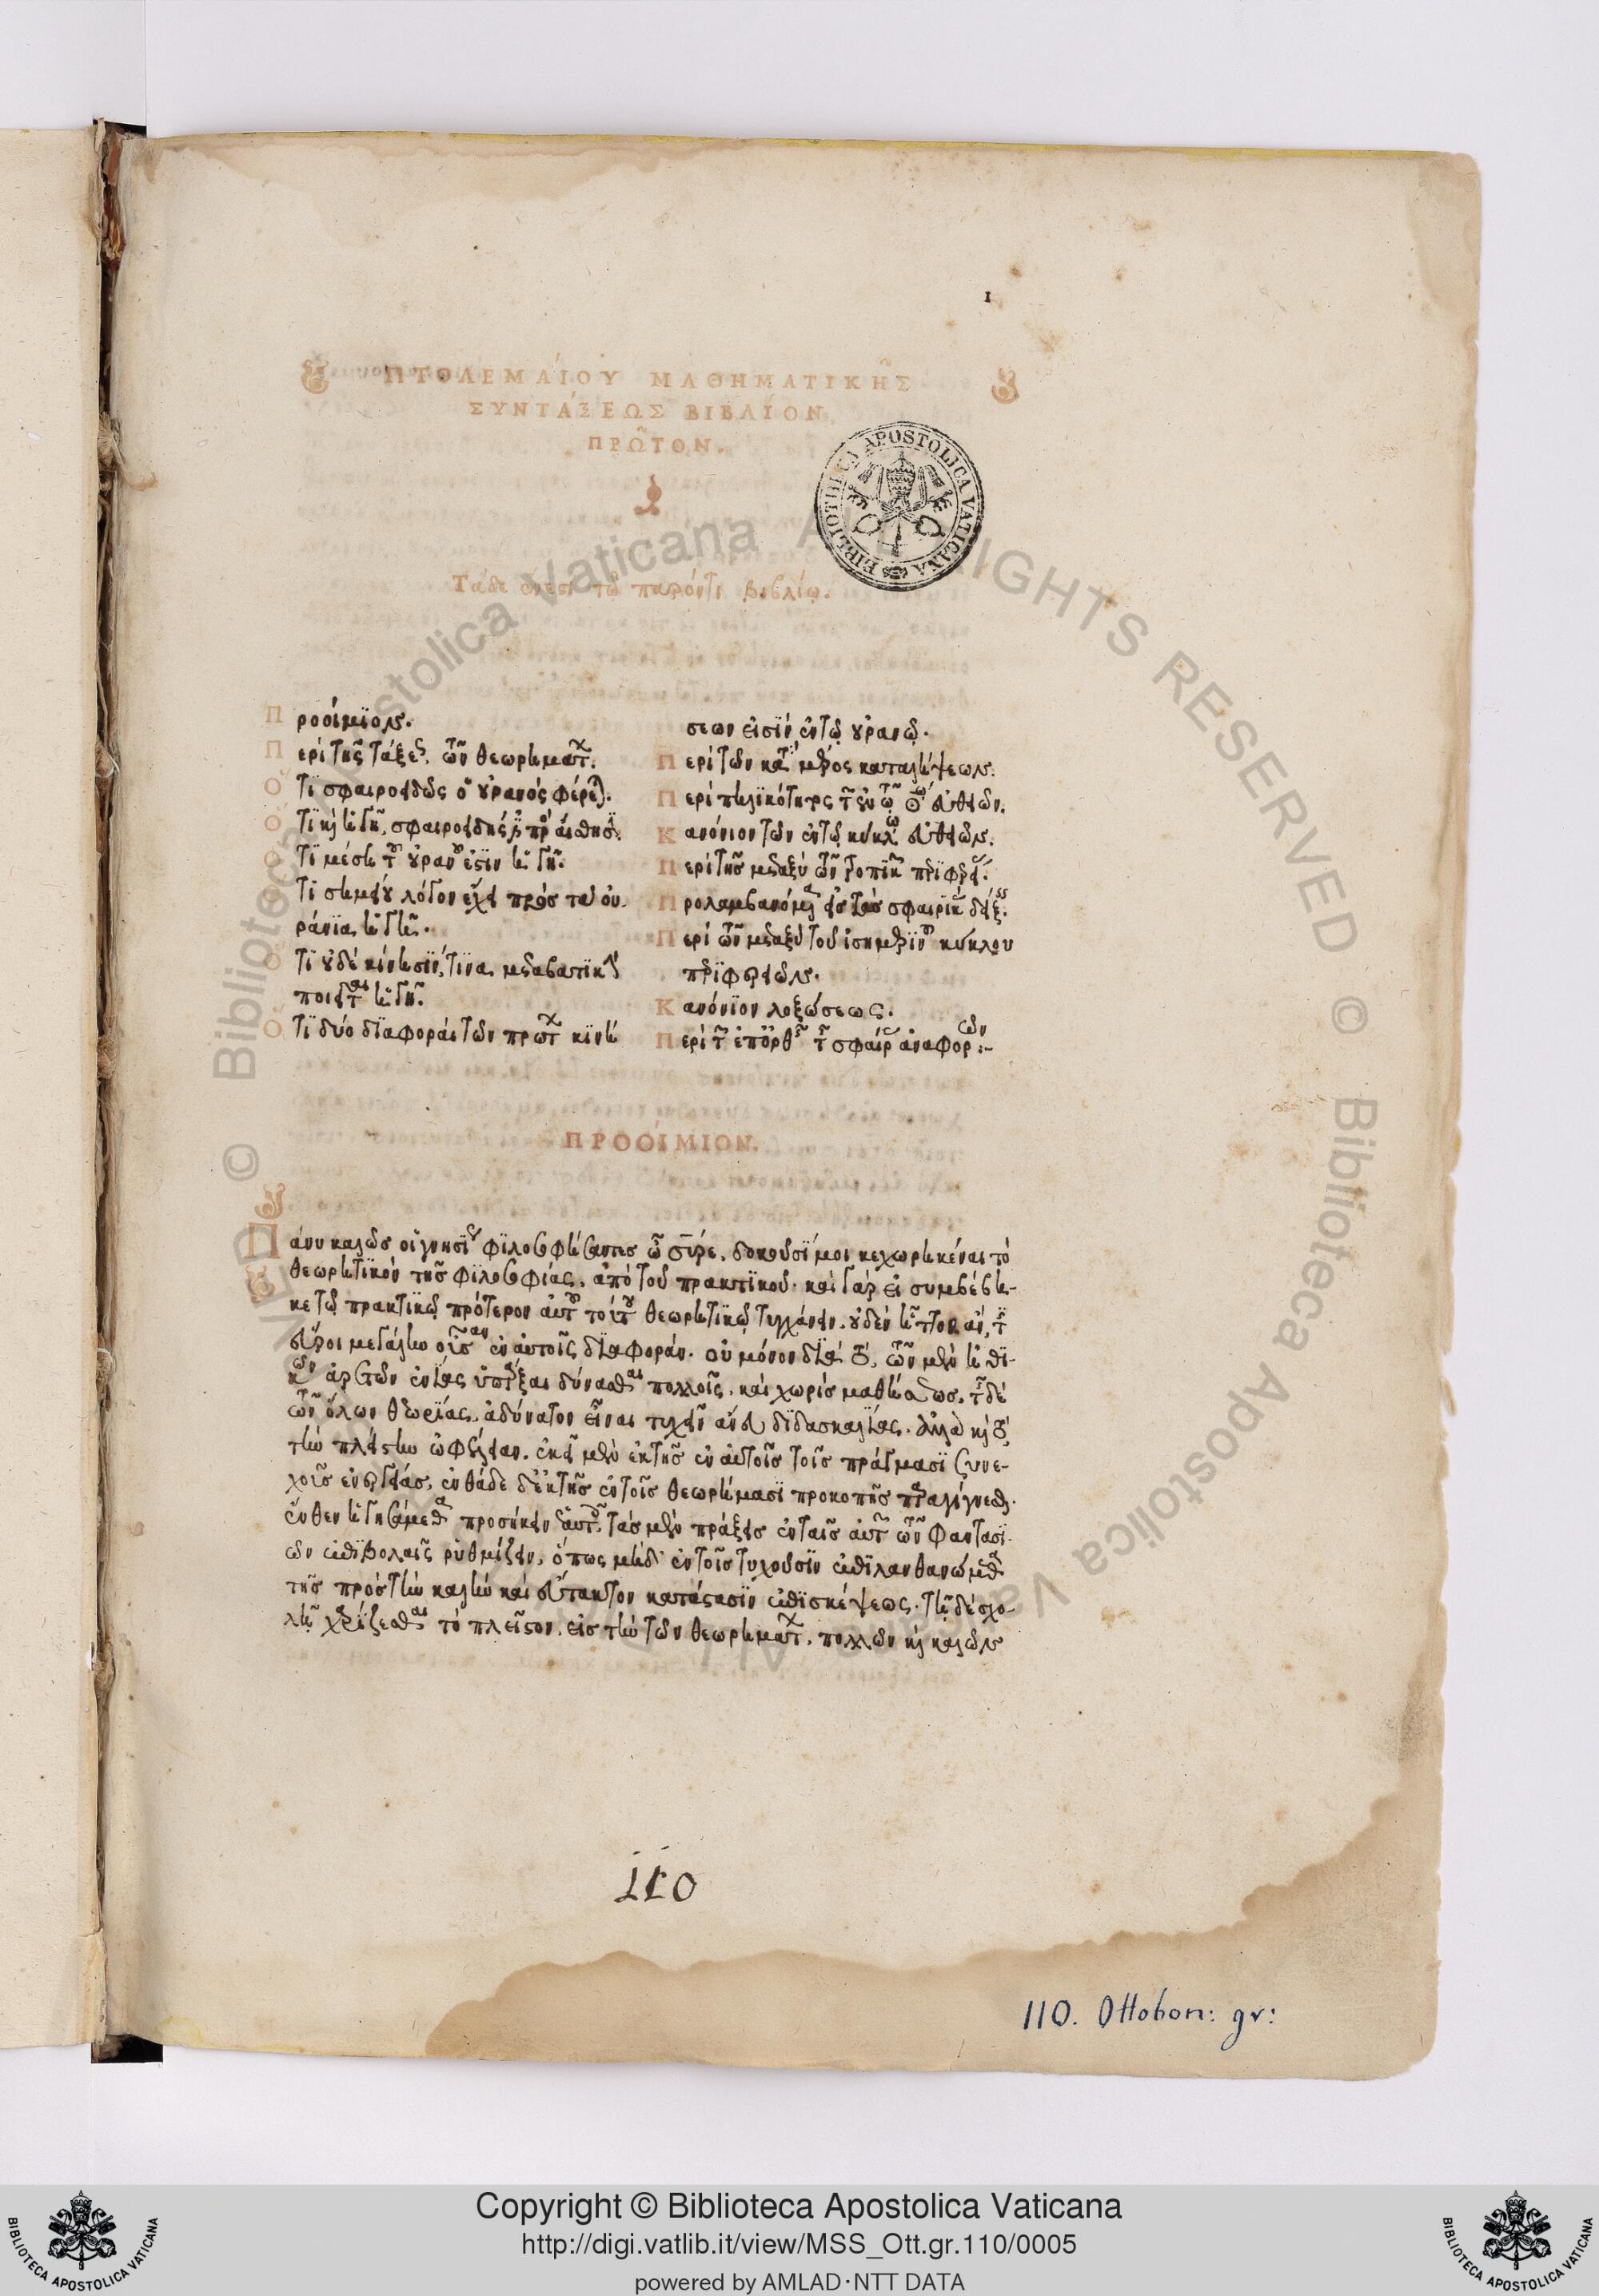 1
ΠΤΟΛΕΜΑΊΟΥ ΜΑΘΗΜΑΤΙΚΗ͂Σ
ΣΥΝΤΆΞΕΩΣ ΒΙΒΛΊΟΝ
ΠΡΩ͂ΤΟΝ.
Τάδε ἔνεστι τῷ παρόντι βιβλίῳ.
Προοίμιον.
Περὶ τῆς τάξεως τῶν θεωρημάτων.
Ὅτι σφαιροειδῶς ὁ οὐρανὸς φέρεται.
Ὅτι καὶ ἡ γῆ σφαιροειδής ἐστι πρὸς αἴσθησιν
Ὅτι μέση τοῦ οὐρανοῦ ἐστιν ἡ γῆ.
Ὅτι σημείου λόγον ἔχει πρὸς τὰ οὐ-
ράνια ἡ γῆ.
Ὅτι οὐδὲ κίνησίν τινα μεταβατικὴν
ποιεῖται ἡ γῆ.
Ὅτι δύο διαφοραὶ τῶν πρώτων κινή
σεων εἰσὶν ἐν τῷ οὐρανῷ.
Περὶ τῶν κατὰ μέρος καταλήψεων.
Περὶ πηλικότητος τῶν ἐν τῷ κύκλῳ εὐθειῶν.
Κανόνιον τῶν ἐν τῷ κύκλῳ εὐθειῶν.
Περὶ τῆς μεταξὺ τῶν τροπικῶν περιφερείας.
Προλαμβανόμενα εἰς τὰς σφαιρικὰς δείξεις.
Περὶ τῶν μεταξὺ τοῦ ἰσημερινοῦ κύκλου
περιφερειῶν.
Κανόνιον λοξώσεως.
Περὶ τῶν ἐπ' ὀρθῆς τῆς σφαίρας ἀναφορῶν:-
ΠΡΟΟΊΜΙΟΝ.
Πάνυ καλῶς οἱ γνησίως φιλοσοφήσαντες ὦ σύρε, δοκοῦσί μοι κεχωρηκέναι τὸ
θεωρητικὸν τῆς φιλοσοφίας, ἀπὸ τοῦ πρακτικοῦ. καὶ γὰρ εἰ συμβέβη-
κε τῷ πρακτικῷ πρότερον αὐτοῦ τούτου θεωρητικῷ τυγχάνειν. οὐδὲν ἧττον ἄν τις
εὕροι μεγάλην οὖσαν ἐν αὐτοῖς διαφοράν. οὐ μόνον διὰ τὸ, τῶν μὲν ἠθι-
κῶν ἀρετῶν ἐνίας ὑπάρξαι δύνασθαι πολλοῖς, καὶ χωρὶς μαθήσεως. τῆς δὲ
τῶν ὅλων θεωρίας, ἀδύνατον εἶναι τυχεῖν ἄνευ διδασκαλίας. ἀλλὰ καὶ τὸ
τὴν πλείστην ὠφέλειαν. ἐκεῖ μὲν ἐκ τῆς ἐν αὐτοῖς τοῖς πράγμασι συνε-
χοῦς ἐνεργείας, ἐνθάδε δ' ἐκ τῆς ἐν τοῖς θεωρήμασι προκοπῆς παραγίγνεσθαι.
ἔνθεν ἡγησάμεθα προσήκειν ἑαυτοῖς, τὰς μὲν πράξεις ἐν ταῖς αὐτῶν τῶν φαντασι-
ῶν ἐπιβολαῖς ῥυθμίζειν, ὅπως μηδ' ἐν τοῖς τυχοῦσιν ἐπιλανθανώμεθα
τῆς πρὸς τὴν καλὴν καὶ εὔτακτον κατάστασιν ἐπισκέψεως. τῇ δὲ σχο-
λῇ χαρίζεσθαι τὸ πλεῖστον, εἰς τὴν τῶν θεωρημάτων, πολλῶν καὶ καλῶν
110
110. Ottobon: gr:
BIBLIOTHECA APOSTOLICA VATICANA
© Biblioteca Apostolica Vaticana ALL RIGHTS RESERVED © Biblioteca Apostolica Vaticana ALL RIGHTS RESERVED
Copyright © Biblioteca Apostolica Vaticana
http://digi.vatlib.it/view/MSS_Ott.gr.110/0005
powered by AMLAD·NTT DATA
BIBLIOTECA APOSTOLICA VATICANA
BIBLIOTECA APOSTOLICA VATICANA